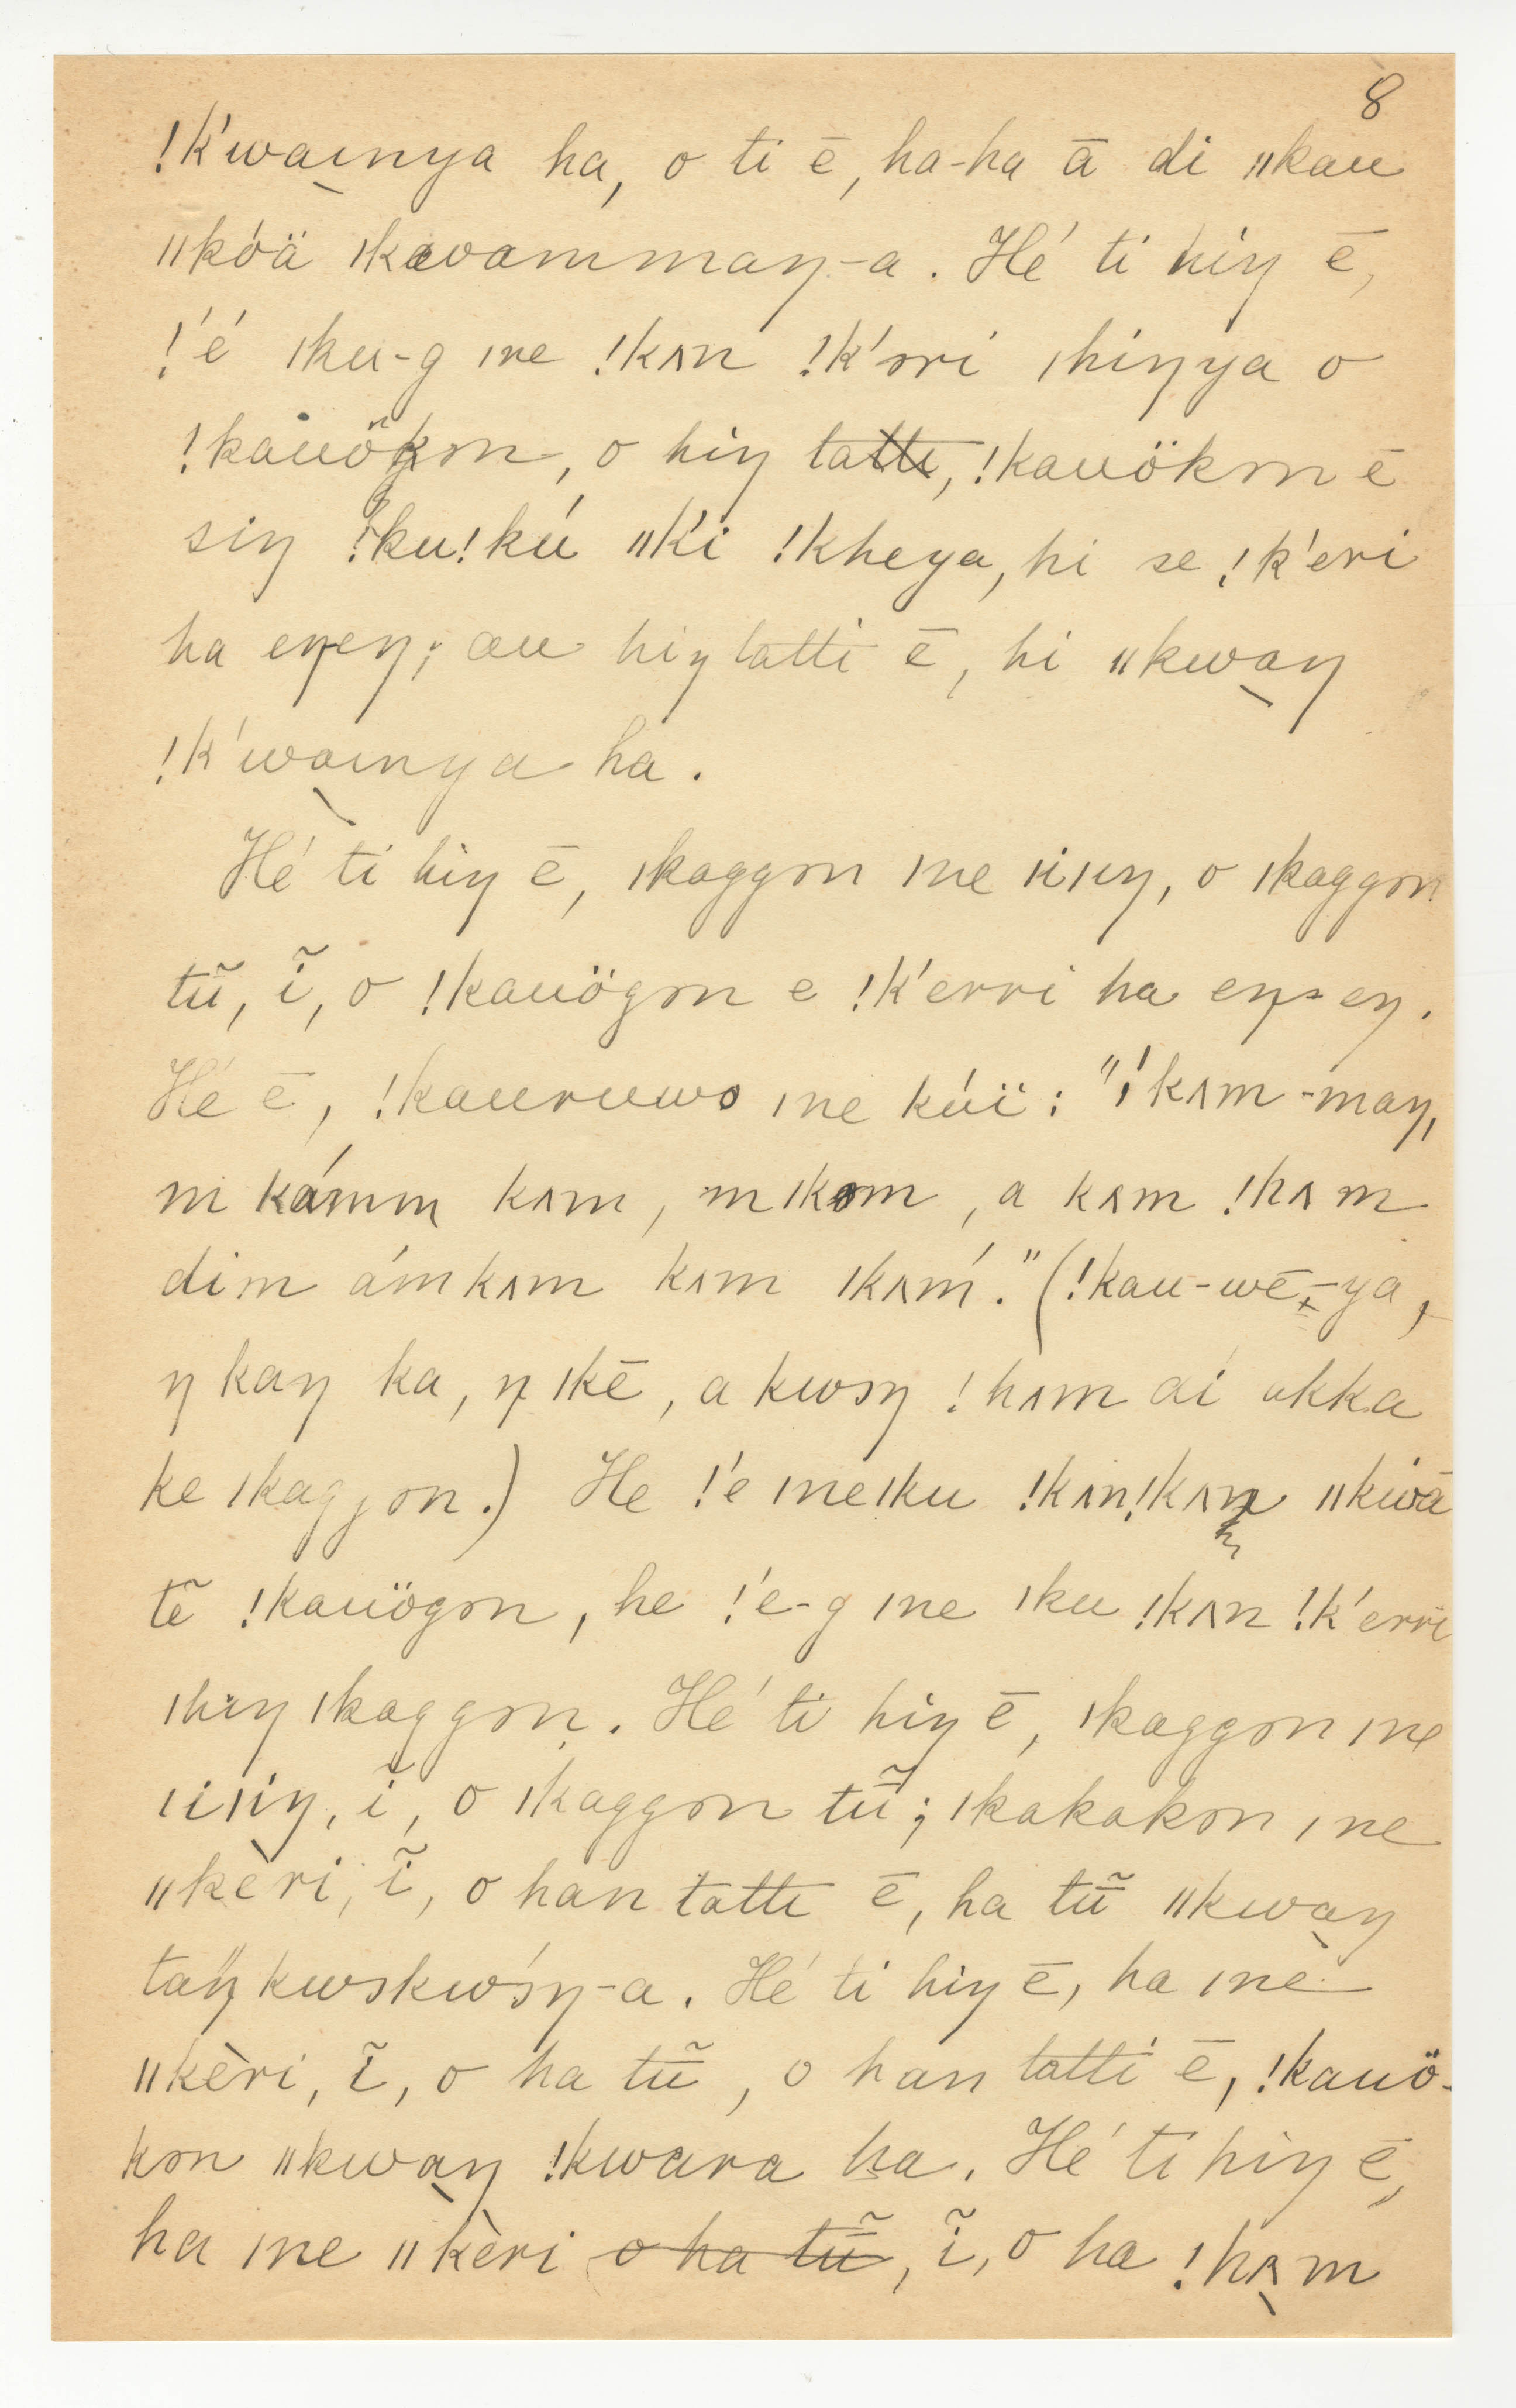 8
!k'wa̠ınya ha, o ti ē, ha-ha ā di ǁkau
ǁkóä ǀkwammaŋ-a. Hé ti hiŋ ē,
!'é ǀku-g ǀne !kʌn !k'ɔrri ǀhiŋya o
!kauökɔn, o hiŋ tatti, !kauökɔn ē
siŋ !ku!kú ǁk'i !kheya, hi se !k'eri
ha eŋeŋ; au hiŋ tatti ē, hi ǁkwa̠ŋ
!k'wa̠ınya ha.
Hé ti hiŋ ē, ǀkaggɔn ǀne ǀiǀıŋ, o ǀkaggɔn
tũ̄, ĩ, o !kauögɔn e !k'erri ha eŋ-eŋ.
Hé ē, !kauruwo ǀne kúï: "ǀ'kʌm-maŋ,
m kámm kʌm, m ǀkɔm, a kʌm !hʌm
dim ámkʌm kʌm ǀkʌḿ." (!kau-wē-ya,
ŋ kaŋ ka, ŋ ǀkē, a kwɔŋ !hʌm di akka
ke ǀkaggɔn.) He !'e ǀne ǀku !kʌn!kʌn ǁkwā
tẽ !kauögɔn, he !'e-g ǀne ǀku !kʌn !k'erri
ǀhiŋ ǀkaggɔn. Hé ti hiŋ ē, ǀkaggɔn ǀne
ǀiǀiŋ, ĩ, o ǀkaggɔn tũ̄; ǀkakakɔn ǀne
ǁkèri, ĩ, o han tatti ē, ha tũ̄ ǁkwa̠ŋ
taŋ̈ kwɔkwɔ́ŋ-a. Hé ti hiŋ ē, ha ǀne
ǁkèri, ĩ, o ha tũ̄, o han tatti ē, !kauö-
kɔn ǁkwa̠ŋ !kwara ha. Hé ti hiŋ ē,
ha ǀne ǁkèri o ha tũ̄, ĩ, o ha !hʌ̠m